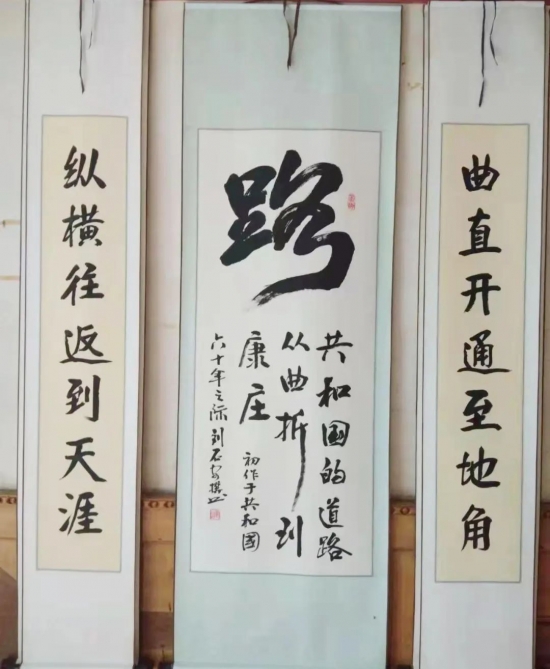 曲直开通至地角
路
共和国的道路
从曲折到
康庄 初作于共和國
六十年之际 刘石
纵横往返到天涯